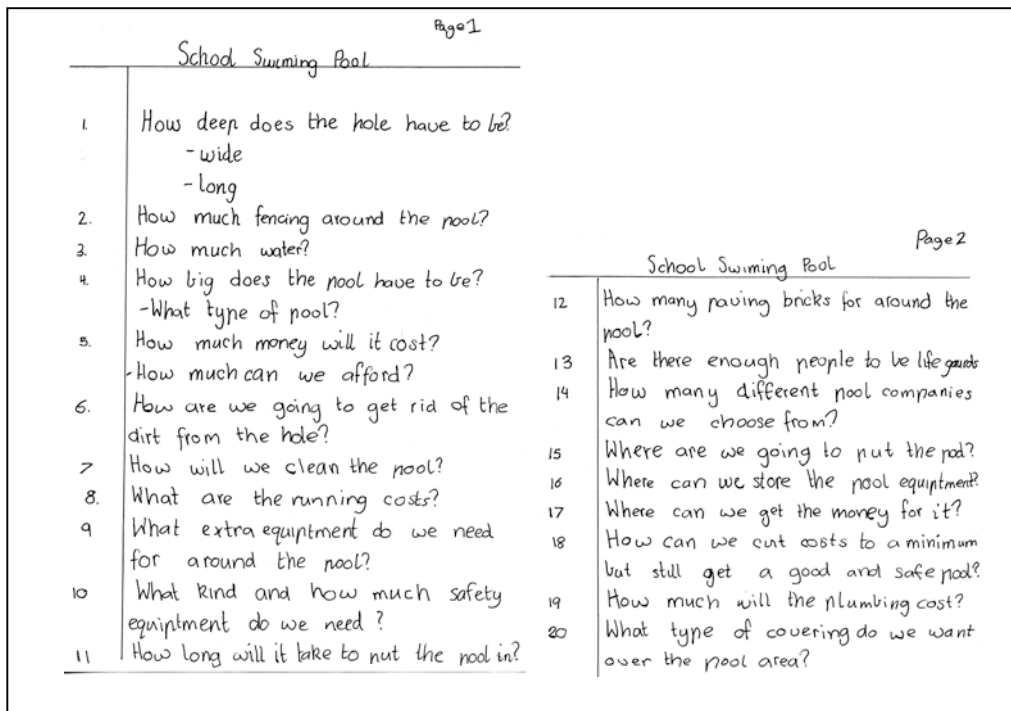 Page1
School Swiming Pool
1. How deep does the hole have to be?
- wide
- long
2. How much fencing around the pool?
3. How much water?
4. How big does the pool have to be?
- What type of pool?
5. How much money will it cost?
- How much can we afford?
6. How are we going to get rid of the
dirt from the hole?
7 How will we clean the pool?
8. What are the running costs?
9 What extra equiptment do we need
for around the pool?
10 What kind and how much safety
equiptment do we need?
11 How long will it take to put the pool in?
Page2
School Swiming Pool
12 How many paving bricks for around the
pool?
13 Are there enough people to be life gaurds
14 How many different pool companies
can we choose from?
15 Where are we going to put the pool?
16 Where can we store the pool equiptment?
17 Where can we get the money for it?
18 How can we cut costs to a minimum
but still get a good and safe pool?
19 How much will the plumbing cost?
20 What type of covering do we want
over the pool area?